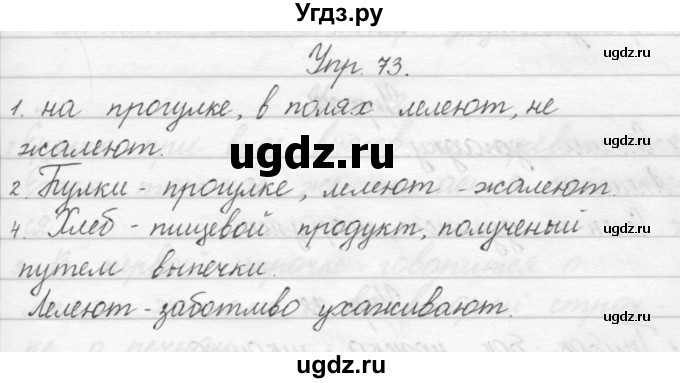 Угдз.ру
ugdz.ru
ugdz.ru
Упр. 73.
1. на прогулке, в полях лелеют, не
жалеют.
ugdz.ru
2. Булки - прогулке, лелеют - жалеют.
ugdz.ru
4. Хлеб - пищевой продукт, полученый
путем выпечки.
Лелеют - заботливо ухаживают.
ugdz.ru
ugdz.ru